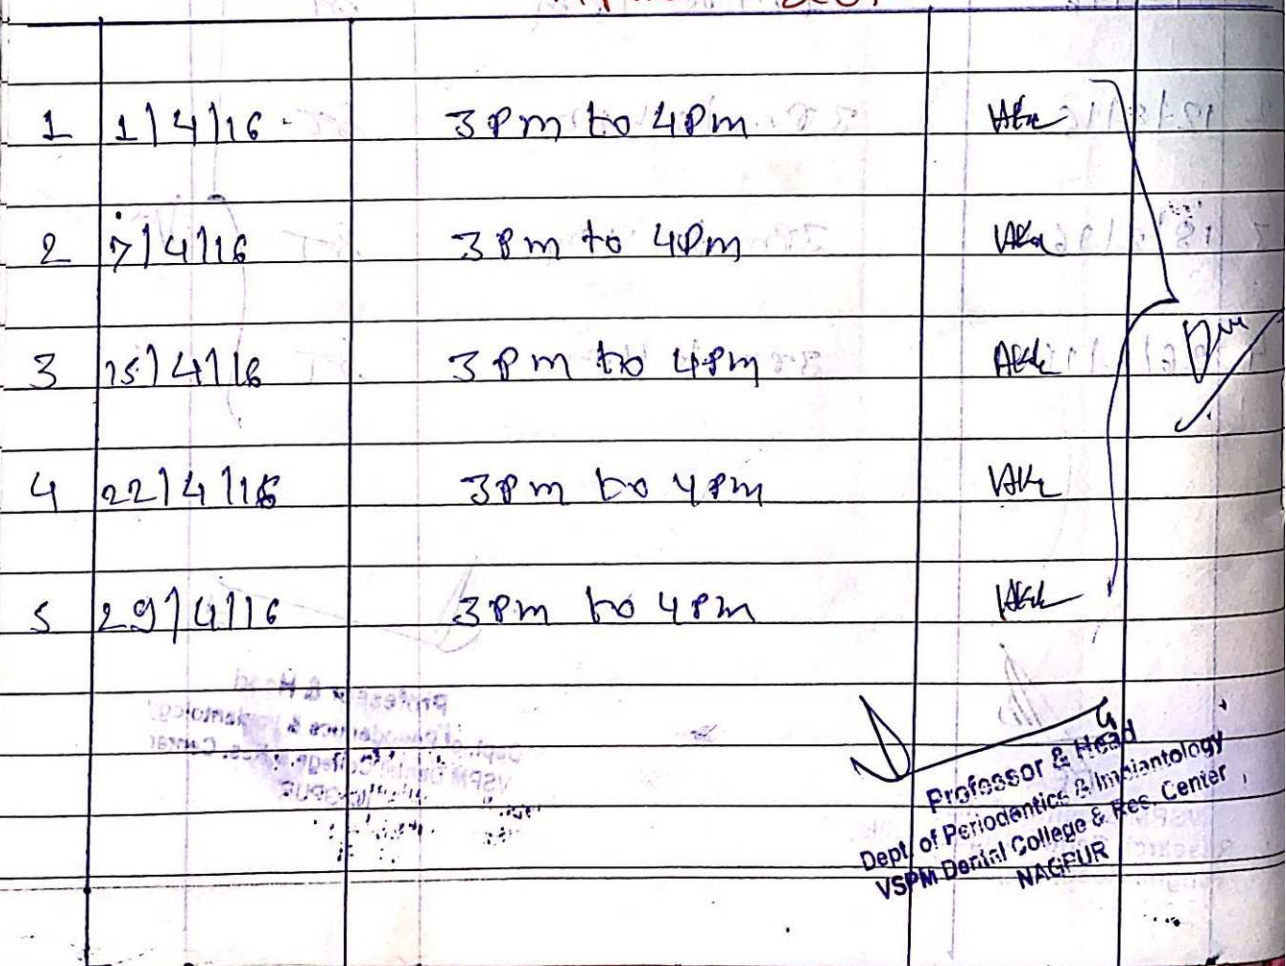 1 1/4/16 3Pm to 4Pm
2 7/4/16 3Pm to 4Pm
3 15/4/16 3Pm to 4Pm
4 22/4/16 3Pm to 4Pm
5 29/4/16 3Pm to 4Pm
Professor & Head
Dept. of Periodentics & Implantology
VSPM Dental College & Res. Center
NAGPUR